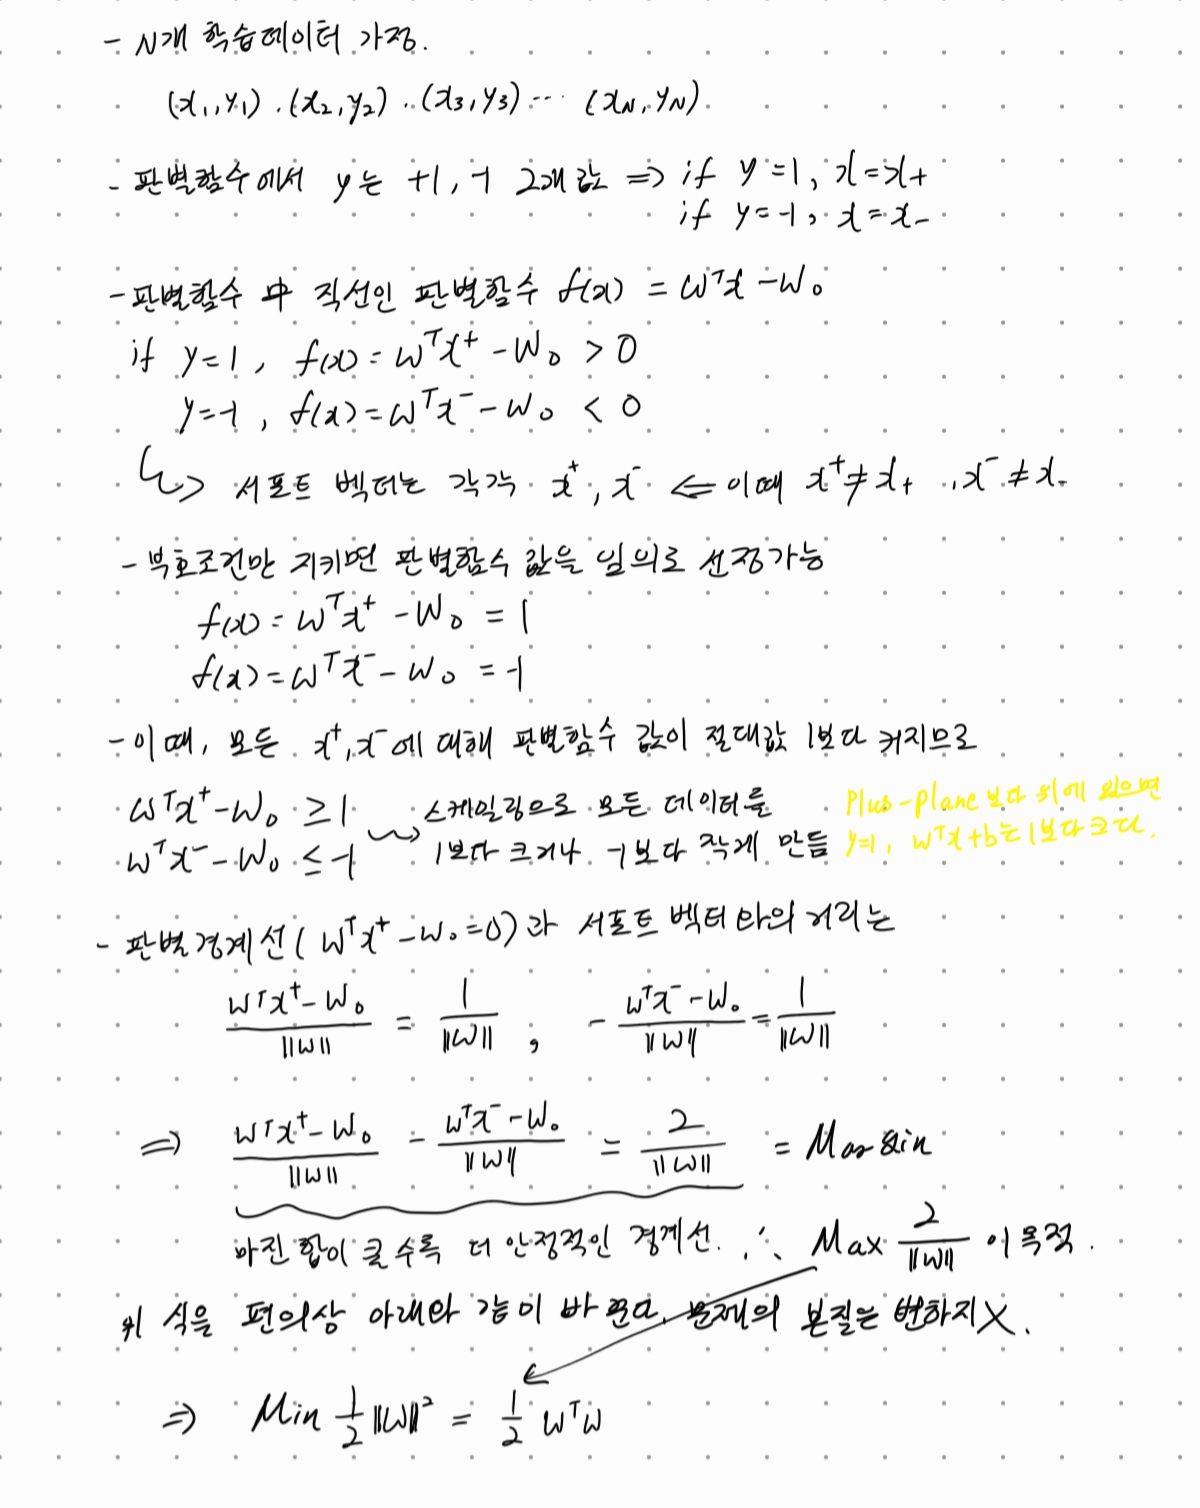 - N개 학습데이터 가정.
(x₁, y₁) . (x₂, y₂) . (x₃, y₃) ... (x_N, y_N).
- 판별함수에서 y는 +1, -1 2개 값 => if y=1, x=x₊
if y=-1, x=x₋
- 판별함수 中 직선인 판별함수 f(x) = wᵀx - w₀
if y=1, f(x) = wᵀx⁺ - w₀ > 0
y=-1, f(x) = wᵀx⁻ - w₀ < 0
↳ 서포트 벡터는 각각 x⁺, x⁻ ⇐ 이때 x⁺≠x₊ , x⁻≠x₋
- 부호조건만 지키면 판별함수 값을 임의로 선정가능
f(x) = wᵀx⁺ - w₀ = 1
f(x) = wᵀx⁻ - w₀ = -1
- 이때, 모든 x⁺, x⁻에 대해 판별함수 값이 절대값 1보다 커지므로
wᵀx⁺ - w₀ ≥ 1 ⇝ 스케일링으로 모든 데이터를
wᵀx⁻ - w₀ ≤ -1 1보다 크거나 -1보다 작게 만듦
Plus-plane 보다 위에 있으면
y=1, wᵀx+b는 1보다 크다.
- 판별경계선 (wᵀx⁺ - w₀ = 0)과 서포트 벡터와의 거리는
(wᵀx⁺ - w₀)/||w|| = 1/||w|| , - (wᵀx⁻ - w₀)/||w|| = 1/||w||
=> (wᵀx⁺ - w₀)/||w|| - (wᵀx⁻ - w₀)/||w|| = 2/||w|| = Margin
마진 합이 클수록 더 안정적인 경계선. ∴ Max 2/||w|| 이 목적.
위 식을 편의상 아래와 같이 바꾼다. 문제의 본질은 변하지X.
=> Min 1/2 ||w||² = 1/2 wᵀw